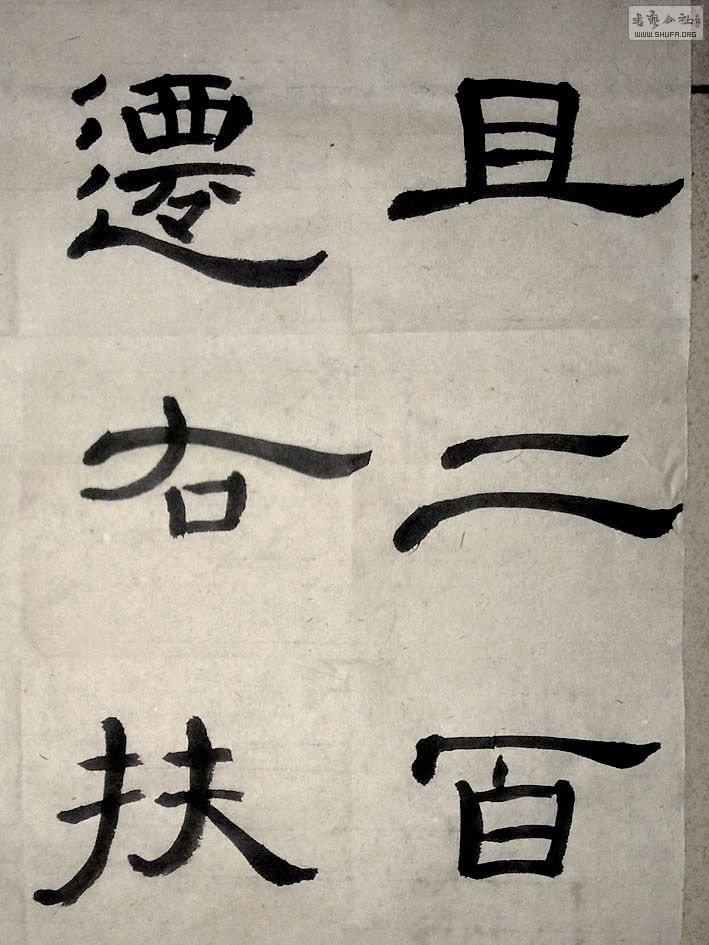 且二百
遷右扶
書藝公社
WWW.SHUFA.ORG